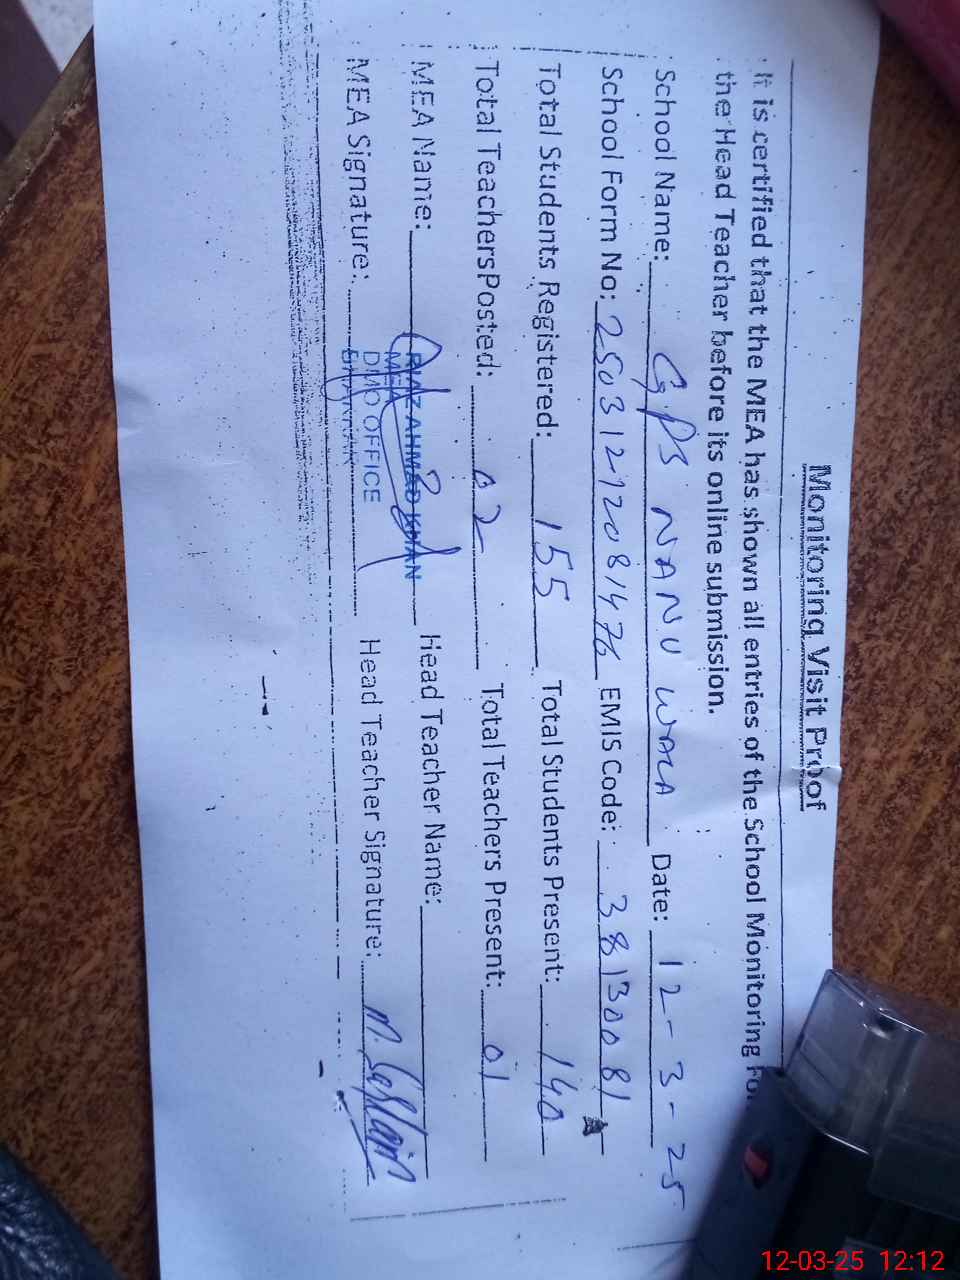 Monitoring Visit Proof
It is certified that the MEA has shown all entries of the School Monitoring For
the Head Teacher before its online submission.
School Name: GPS NANU WALA Date: 12-3-25
School Form No: 25031212081476 EMIS Code: 38130081
Total Students Registered: 155 Total Students Present: 140
Total TeachersPosted: 02 Total Teachers Present: 01
MEA Name: RIAZ AHMAD KHAN Head Teacher Name:
MEA
DMO OFFICE
BHAKKAR
MEA Signature: Head Teacher Signature:
12-03-25 12:12